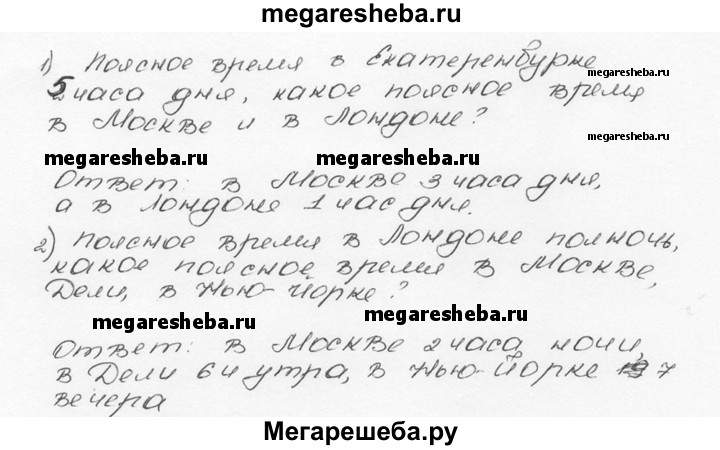 megaresheba.ru
1) Поясное время в Екатеренбурге
5 часа дня, какое поясное время
megaresheba.ru
в Москве и в Лондоне?
megaresheba.ru
megaresheba.ru megaresheba.ru
Ответ: в Москве 3 часа дня,
а в Лондоне 1 час дня.
2) Поясное время в Лондоне полночь,
какое поясное время в Москве,
Дели, в Нью-Йорке?
megaresheba.ru megaresheba.ru
Ответ: в Москве 2 часа ночи,
в Дели 6 ч утра, в Нью-Йорке 7
вечера
Мегарешеба.ру